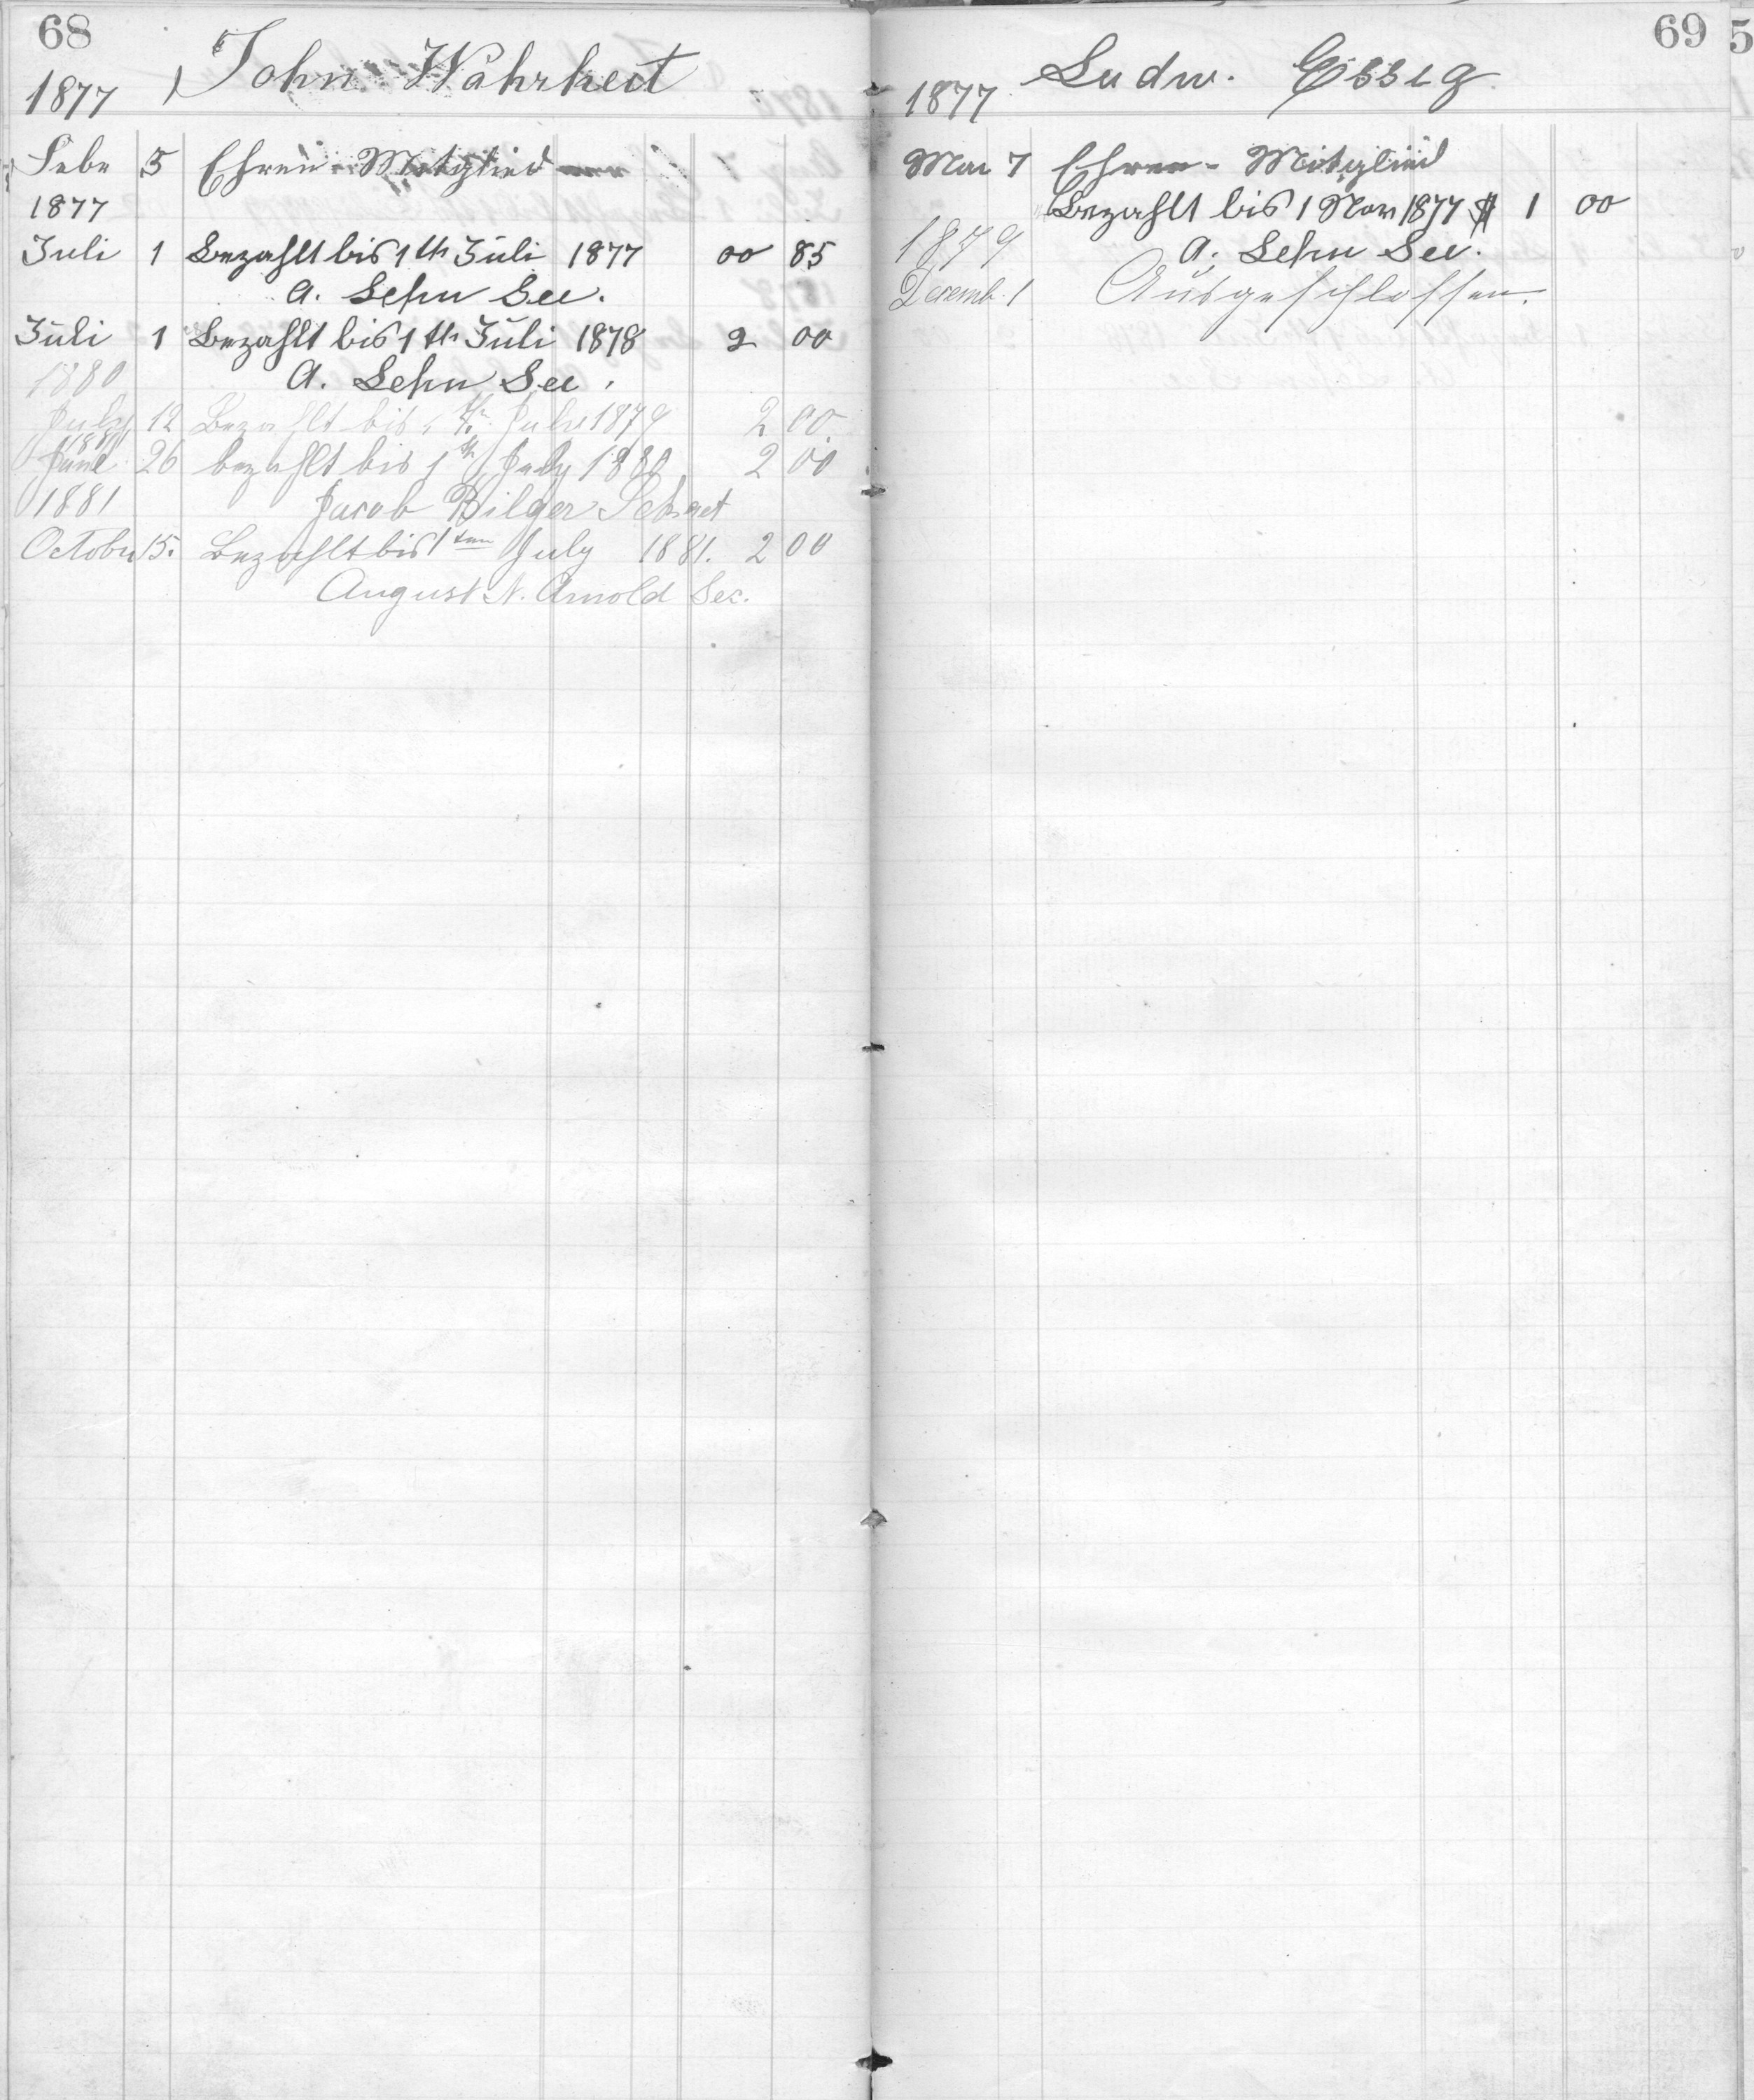 68
1877 John Wahrheit
Febr 5 Ehren-Mitglied
1877
Juli 1 Bezahlt bis 1th Juli 1877 00 85
A. Lehn Sec.
Juli 1 Bezahlt bis 1th Juli 1878 2 00
1880 A. Lehn Sec.
July 12 Bezahlt bis 1th July 1879 2 00
1881
June 26 bezahlt bis 1th July 1880 2 00
1881 Jacob Bilger Secret
October 15. Bezahlt bis 1ten July 1881. 2 00
August N. Arnold Sec.
69
1877 Ludw. Essig
Mai 7 Ehren-Mitglied
Bezahlt bis 1 Nov 1877 $ 1 00
1879 A. Lehn Sec.
Decemb. 1 Ausgeschlossen.
5